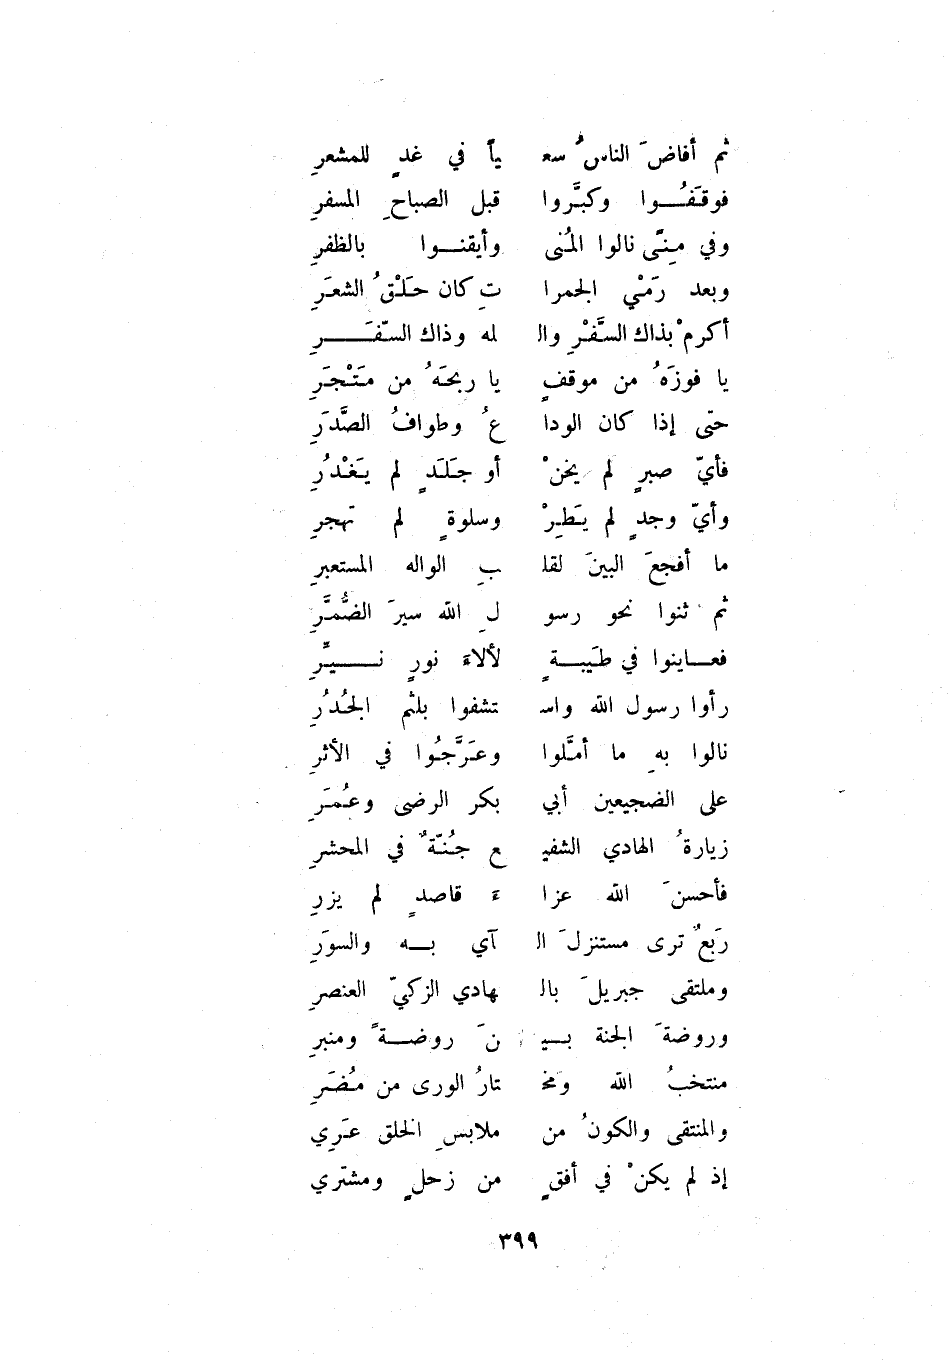 ثم أفاضَ الناسُ سعـ ـياً في غدٍ للمشعرِ
فوقَفُـــوا وكبَّروا قبل الصباحِ المسفرِ
وفي مِنًى نالوا المُنى وأيقنـــوا بالظفرِ
وبعد رَمْي الجمرا تِ كان حَلْقُ الشعَرِ
أكرمْ بذاك السَّفْرِ والـ لمه وذاك السّفَـــرِ
يا فوزَهُ من موقفٍ يا ربحَهُ من مَتْجَرِ
حتى إذا كان الودا عُ وطوافُ الصَّدَرِ
فأيّ صبرٍ لم يخنْ أو جَلَدٍ لم يَغْدُرِ
وأيّ وجدٍ لم يَطِرْ وسلوةٍ لم تهجرِ
ما أفجعَ البينَ لقلـ ـبِ الواله المستعبرِ
ثم ثنوا نحو رسو لِ الله سيرَ الضُّمَّرِ
فعـــاينوا في طَيبـــةٍ لألاءَ نورٍ نـــيّرِ
رأوا رسول الله واسـ تشفوا بلثم الجُدُرِ
نالوا بهِ ما أمَّلوا وعَرَّجُوا في الأثرِ
على الضجيعين أبي بكر الرضى وعُمَرِ
زيارةُ الهادي الشفيـ ـع جُنّةٌ في المحشرِ
فأحسنَ الله عزا ءَ قاصدٍ لم يزرِ
رَبعٌ ترى مستنزلَ الـ آي بـــه والسورِ
وملتقى جبريلَ بالـ ـهادي الزكيّ العنصرِ
وروضةَ الجنة بـــيـ ـنَ روضـــةً ومنبرِ
منتخبُ الله ومخـ تارُ الورى من مُضَرِ
والمنتقى والكونُ من ملابسِ الخلق عَرِي
إذ لم يكنْ في أفقٍ من زحلٍ ومشتري
٣٩٩